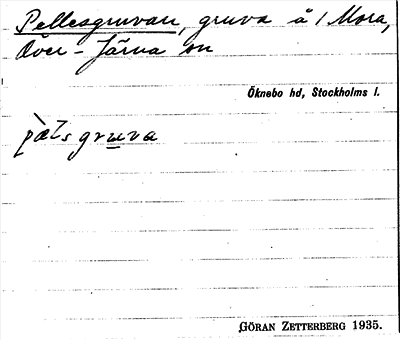 Pellesgruvan, gruva å 1 Mora,
Över-Järna sn
Öknebo hd, Stockholms l.
pæ̀ls gruva
GÖRAN ZETTERBERG 1935.